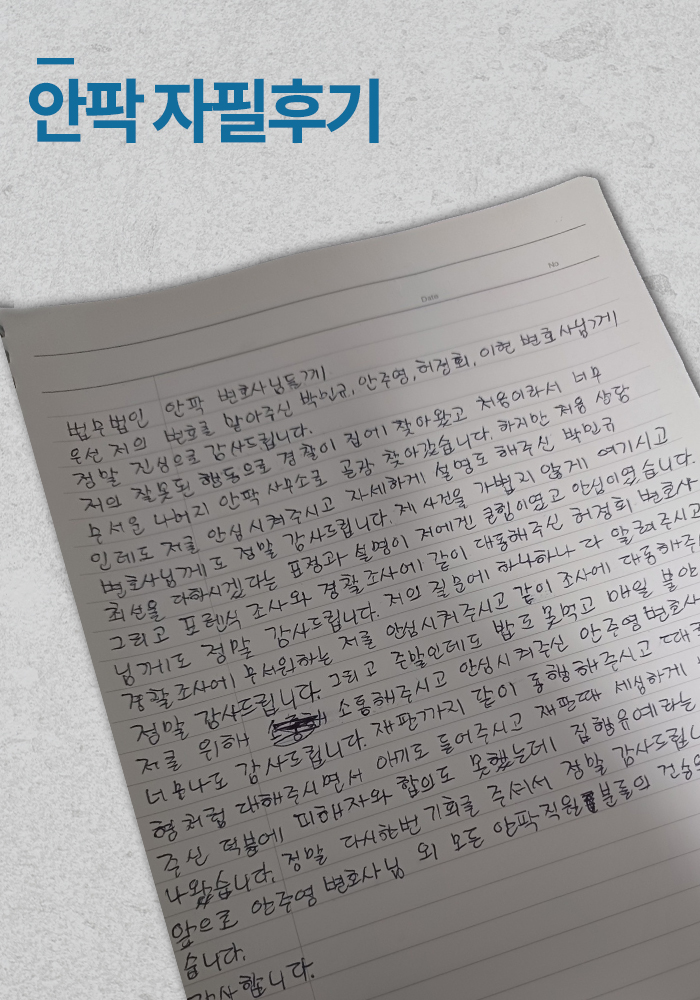 안팍 자필후기
Date
No
법무법인 안팍 변호사님들께
우선 저의 변호를 맡아주신 박민규, 안주영, 허정회, 이현 변호사님께
정말 진심으로 감사드립니다.
저의 잘못된 행동으로 경찰이 집에 찾아왔고 처음이라서 너무
무서운 나머지 안팍 사무소로 곧장 찾아갔습니다. 하지만 처음 상담
인데도 저를 안심시켜주시고 자세하게 설명도 해주신 박민규
변호사님께도 정말 감사드립니다. 제 사건을 가볍지 않게 여기시고
최선을 다하시겠다는 표정과 설명이 저에겐 큰힘이였고 안심이였습니다.
그리고 포렌식 조사와 경찰조사에 같이 대동해주신 허정회 변호사
님께도 정말 감사드립니다. 저의 질문에 하나하나 다 알려주시고
경찰조사에 무서워하는 저를 안심시켜주시고 같이 조사에 대동해주
정말 감사드립니다. 그리고 주말인데도 밥도 못먹고 매일 불안
저를 위해 소통해주시고 안심시켜주신 안주영변호사
너무나도 감사드립니다. 재판까지 같이 동행해주시고
형처럼 대해주시면서 얘기도 들어주시고 재판때 세심하게
주신 덕분에 피해자와 합의도 못했는데 집행유예라는
나왔습니다. 정말 다시한번 기회를 주셔서 정말 감사드립니
앞으로 안주영변호사님 외 모든 안팍직원분들의
습니다.
감사합니다.